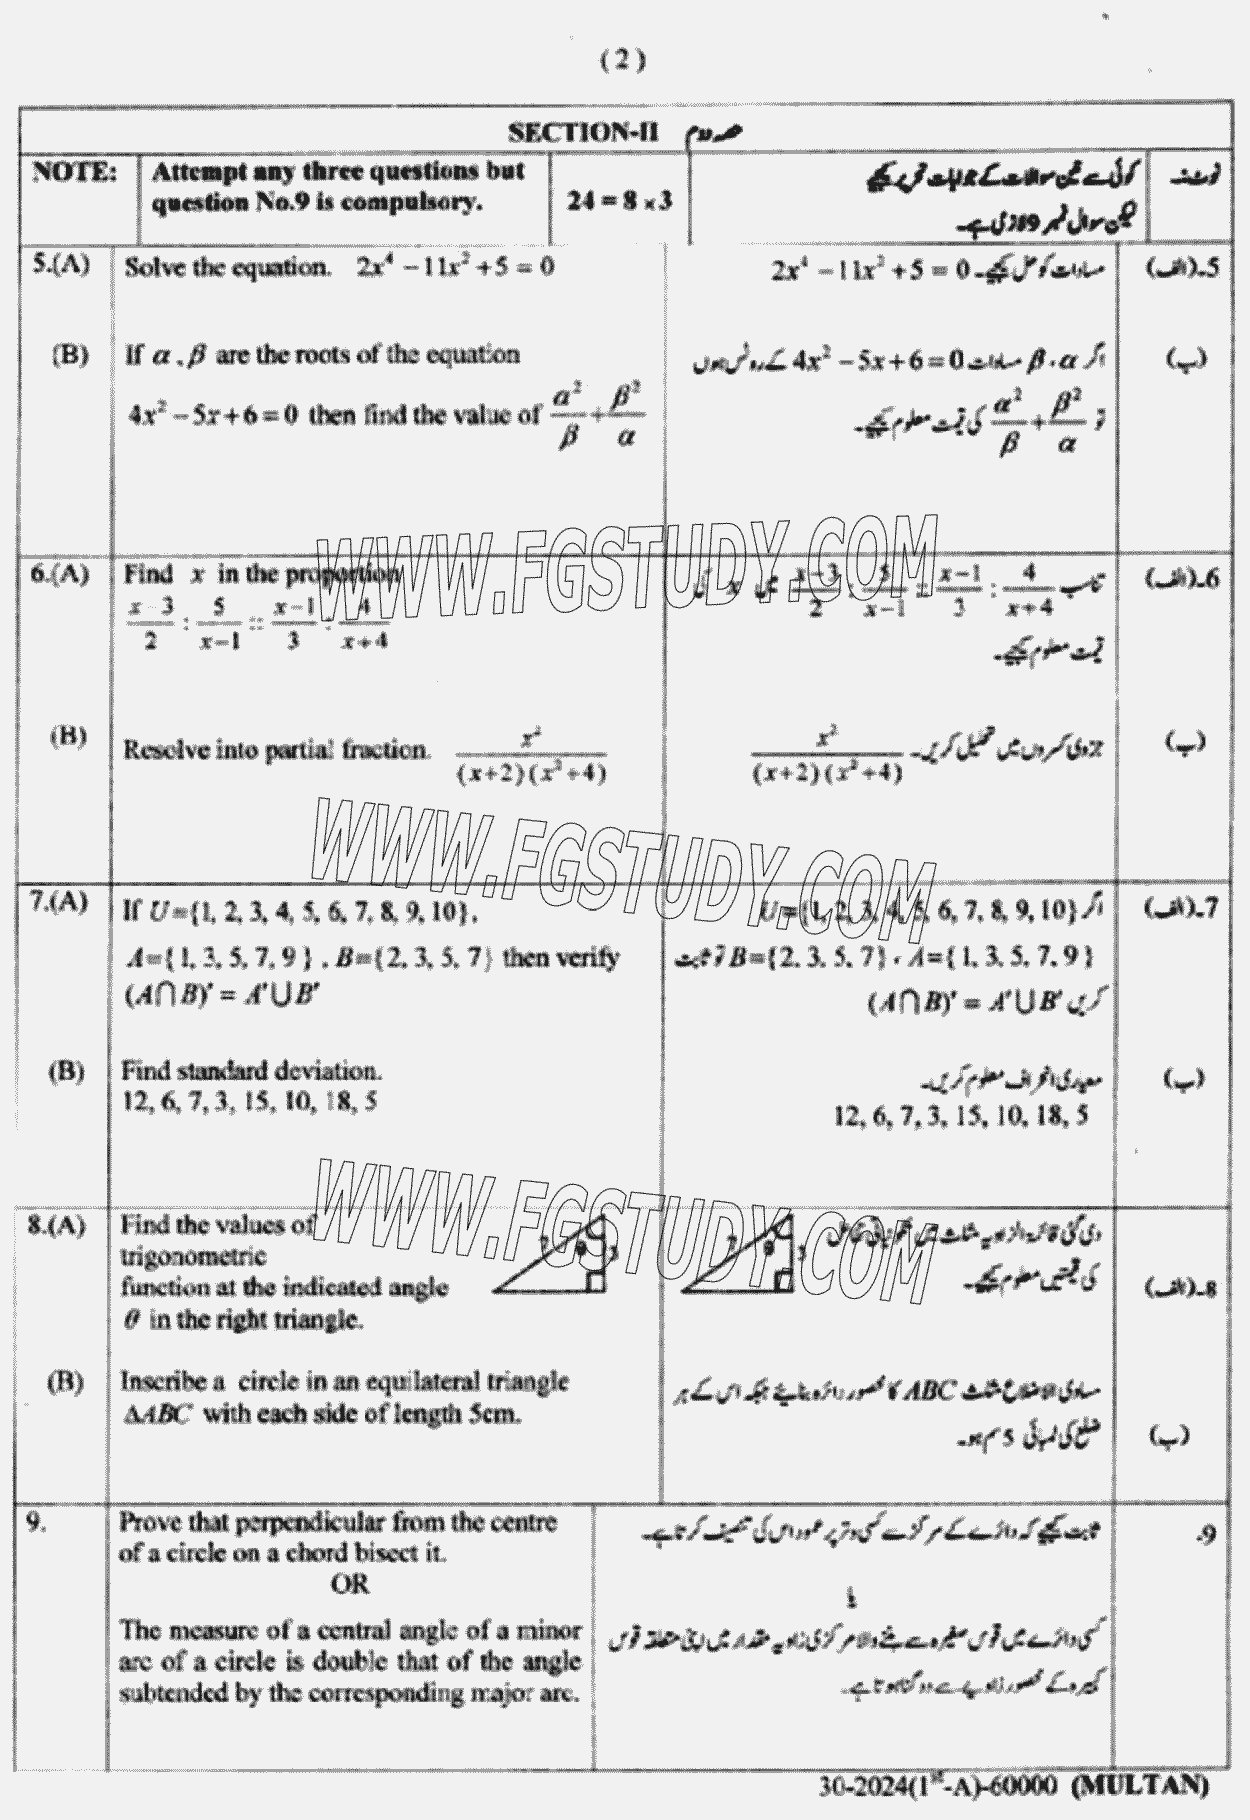 ( 2 )
SECTION-II حصہ دوم
NOTE: Attempt any three questions but question No.9 is compulsory. 24 = 8 × 3 کوئی سے تین سوالات کے جوابات تحریر کیجیے لیکن سوال نمبر 9 لازمی ہے۔ نوٹ:۔
5.(A) Solve the equation. 2x⁴ − 11x² + 5 = 0
مساوات کو حل کیجیے۔ 2x⁴ − 11x² + 5 = 0 5۔(الف)
(B) If α , β are the roots of the equation
4x² − 5x + 6 = 0 then find the value of α²/β + β²/α
اگر α ، β مساوات 4x² − 5x + 6 = 0 کے روٹس ہوں (ب)
تو α²/β + β²/α کی قیمت معلوم کیجیے۔
6.(A) Find x in the proportion
(x−3)/2 : 5/(x−1) :: (x−1)/3 : 4/(x+4)
تناسب (x−3)/2 : 5/(x−1) :: (x−1)/3 : 4/(x+4) میں x کی 6۔(الف)
قیمت معلوم کیجیے۔
(B) Resolve into partial fraction. x²/((x+2)(x²+4))
جزوی کسروں میں تحلیل کریں۔ x²/((x+2)(x²+4)) (ب)
7.(A) If U={1, 2, 3, 4, 5, 6, 7, 8, 9, 10},
A={ 1, 3, 5, 7, 9 } , B={2, 3, 5, 7} then verify
(A∩B)′ = A′∪B′
اگر U={1, 2, 3, 4, 5, 6, 7, 8, 9, 10} 7۔(الف)
A={ 1, 3, 5, 7, 9 } ، B={2, 3, 5, 7} تو ثابت
کریں (A∩B)′ = A′∪B′
(B) Find standard deviation.
12, 6, 7, 3, 15, 10, 18, 5
معیاری انحراف معلوم کریں۔ (ب)
12, 6, 7, 3, 15, 10, 18, 5
8.(A) Find the values of
trigonometric
function at the indicated angle
θ in the right triangle.
θ 3
θ 3
دی گئی قائمۃ الزاویہ مثلث میں
کی قیمتیں معلوم کیجیے۔ 8۔(الف)
(B) Inscribe a circle in an equilateral triangle
ΔABC with each side of length 5cm.
مساوی الاضلاع مثلث ABC کا محصور دائرہ بنائیے جبکہ اس کے ہر
ضلع کی لمبائی 5 سم ہو۔ (ب)
9. Prove that perpendicular from the centre
of a circle on a chord bisect it.
OR
The measure of a central angle of a minor
arc of a circle is double that of the angle
subtended by the corresponding major arc.
ثابت کیجیے کہ دائرے کے مرکز سے کسی وتر پر عمود اس کی تنصیف کرتا ہے۔ 9۔
یا
کسی دائرے میں قوس صغیرہ سے بننے والا مرکزی زاویہ مقدار میں اپنی متعلقہ قوس
کبیرہ کے محصور زاویے سے دو گنا ہوتا ہے۔
30-2024(1st-A)-60000 (MULTAN)
WWW.FGSTUDY.COM
WWW.FGSTUDY.COM
WWW.FGSTUDY.COM